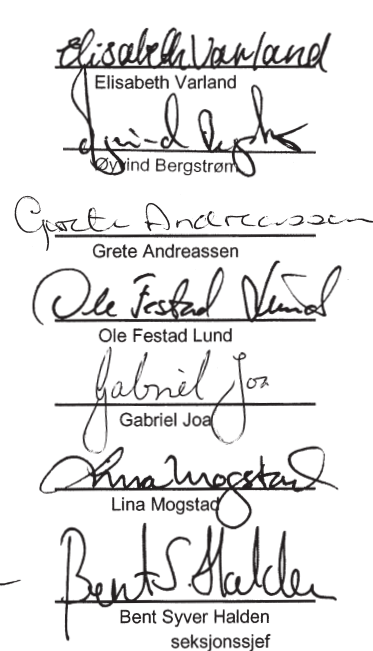 Elisabeth Varland
Elisabeth Varland
Øyvind Bergstrøm
Grete Andreassen
Grete Andreassen
Ole Festad Lund
Ole Festad Lund
Gabriel Joa
Gabriel Joa
Lina Mogstad
Lina Mogstad
Bent S. Halden
Bent Syver Halden
seksjonssjef